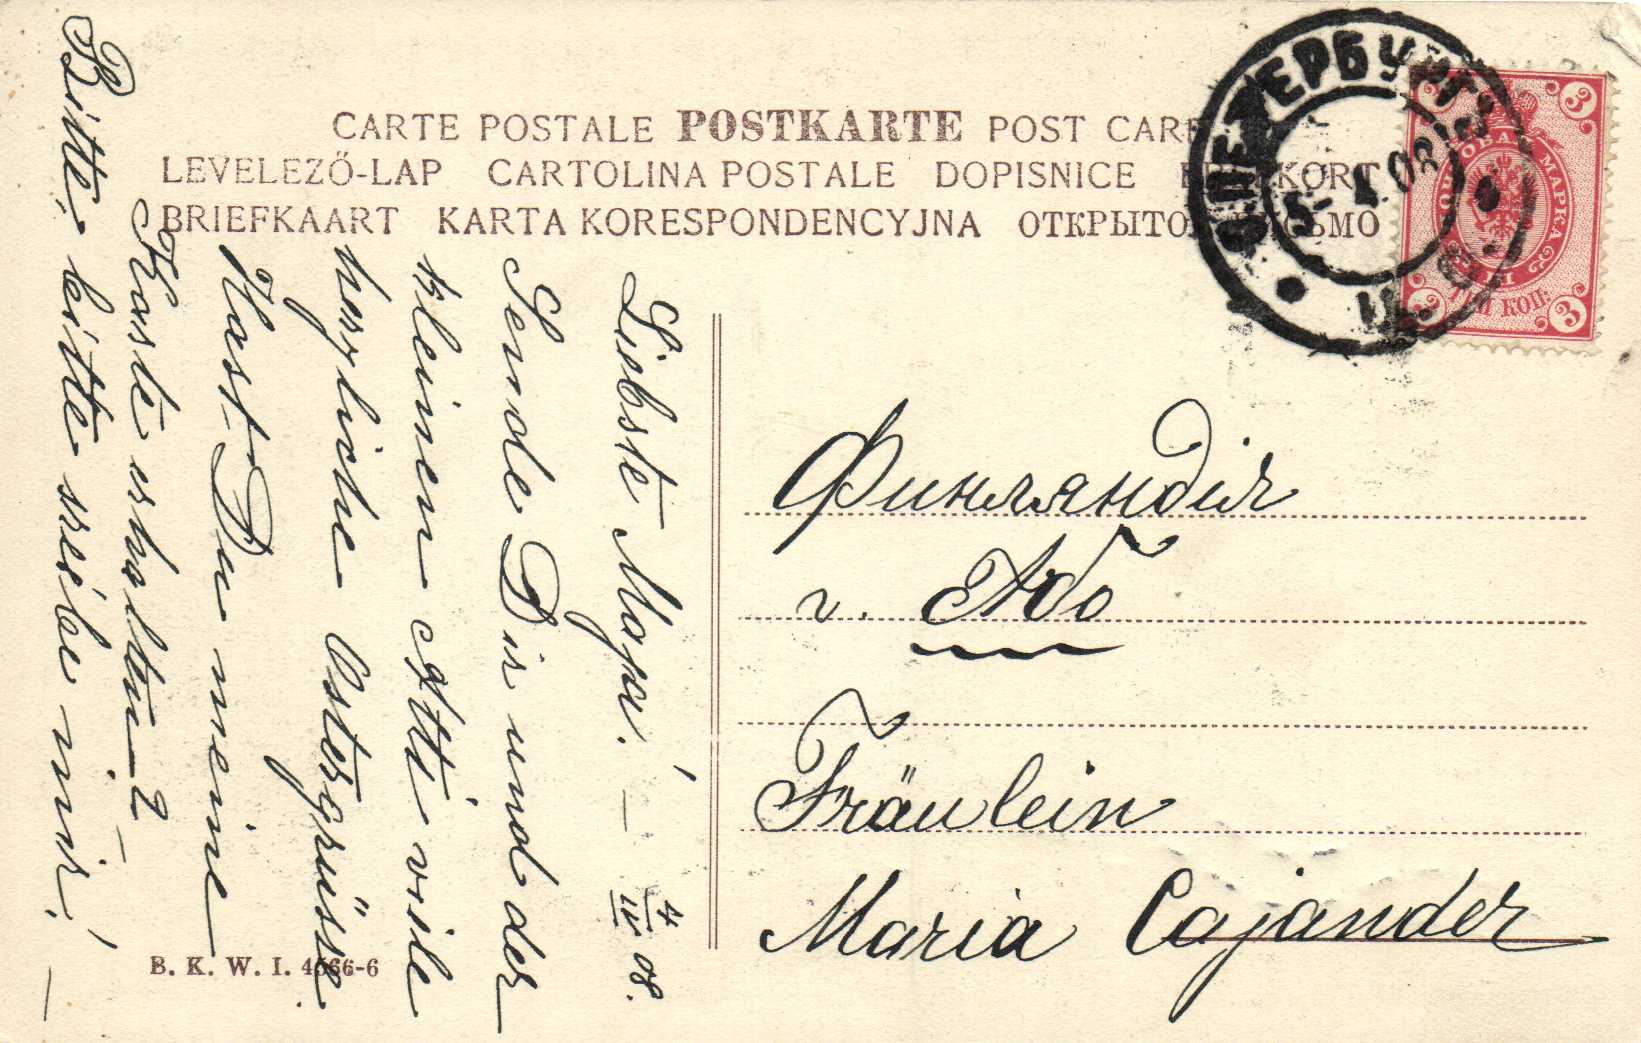 CARTE POSTALE POSTKARTE POST CAR
LEVELEZŐ-LAP CARTOLINA POSTALE DOPISNICE KORT
BRIEFKAART KARTA KORESPONDENCYJNA ОТКРЫТО
С.ПЕТЕРБУРГЪ
5-4 08
ПОЧТОВАЯ МАРКА
ТРИ КОП.
3
3
3
3
Liebste Maja! — 4/IV 08.
Sende Dir und der
kleinen Atti viele
herzliche Ostergrüsse.
Hast Du meine
Karte erhalten—?
Bitte, bitte sreibe mir! —
Финляндія
г. Або
Fräulein
Maria Cajander
B. K. W. I. 4566-6